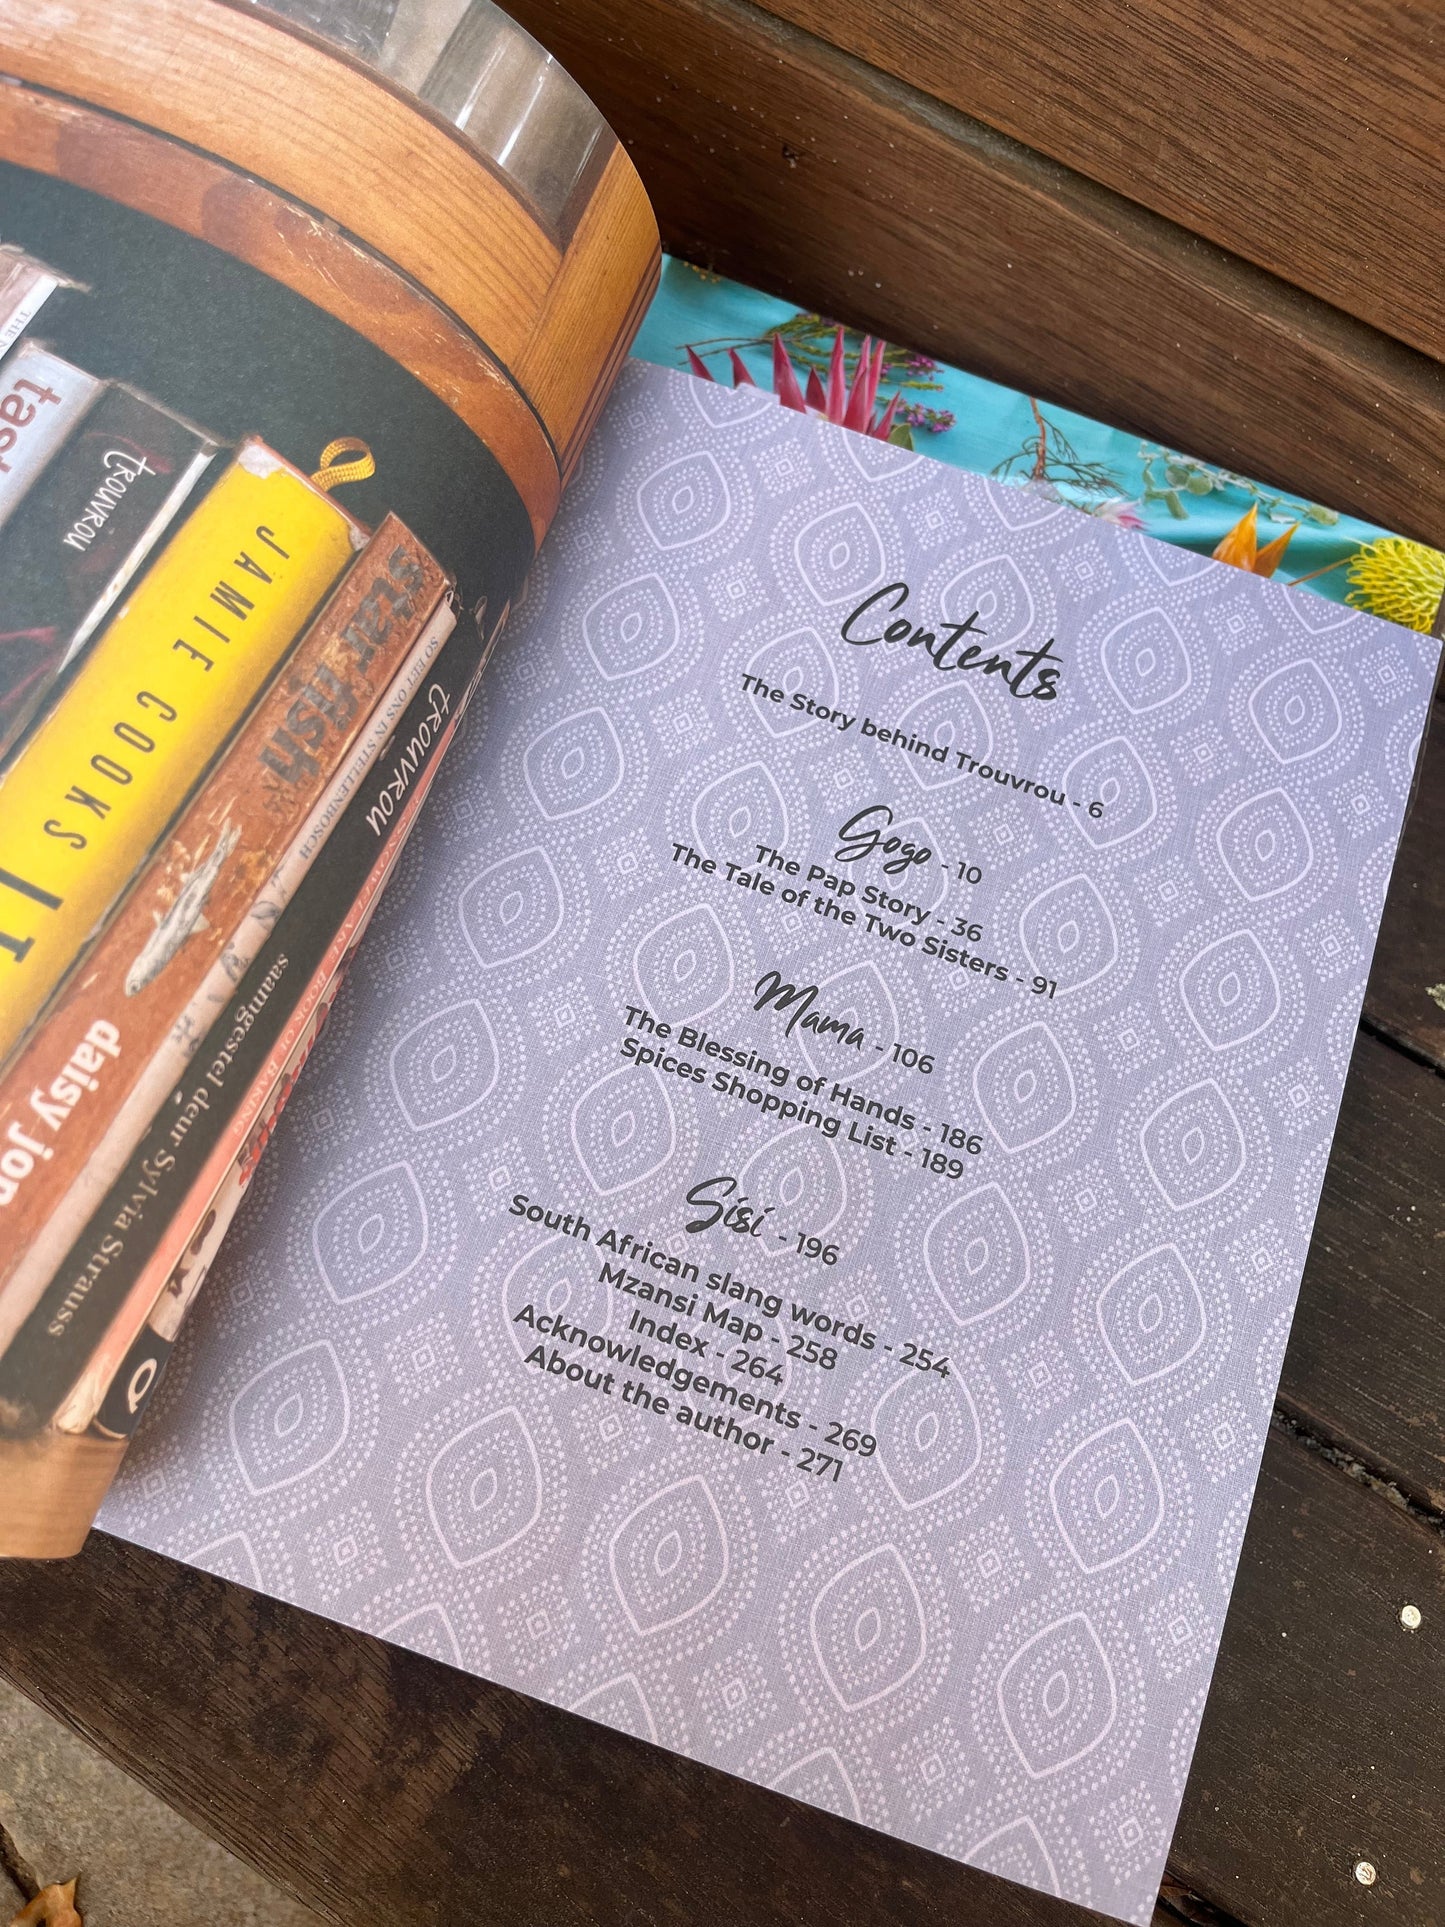 Contents
The Story behind Trouvrou - 6
Gogo - 10
The Pap Story - 36
The Tale of the Two Sisters - 91
Mama - 106
The Blessing of Hands - 186
Spices Shopping List - 189
Sisi - 196
South African slang words - 254
Mzansi Map - 258
Index - 264
Acknowledgements - 269
About the author - 271
trouvrou
JAMIE COOKS IT
starfish
daisy jon
SO EET ONS IN STELLENBOSCH
trouvrou
saamgestel deur Sylvia Strauss
BOOK OF BAKING